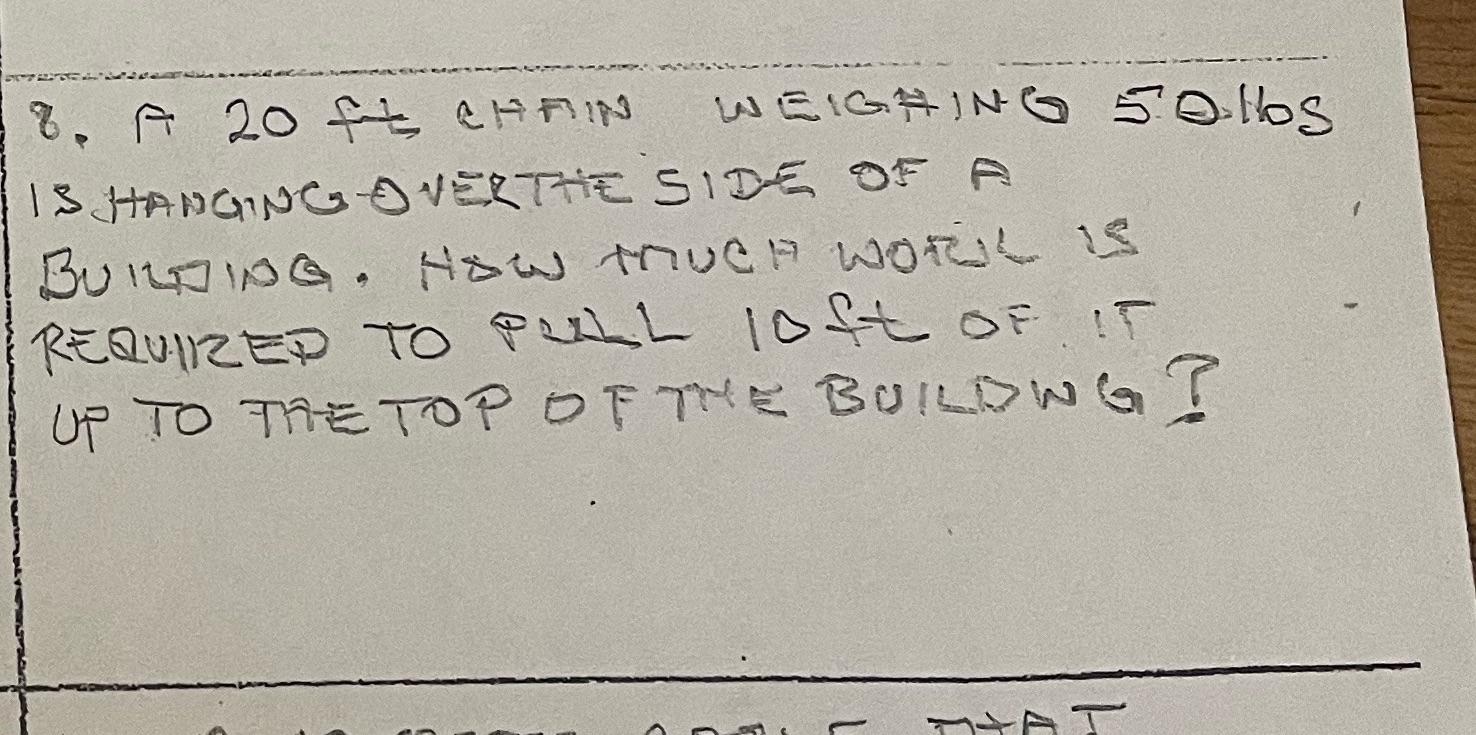 8. A 20 ft CHAIN WEIGHING 50 lbs
IS HANGING OVER THE SIDE OF A
BUILDING. HOW MUCH WORK IS
REQUIRED TO PULL 10 ft OF IT
UP TO THE TOP OF THE BUILDING?
THAT